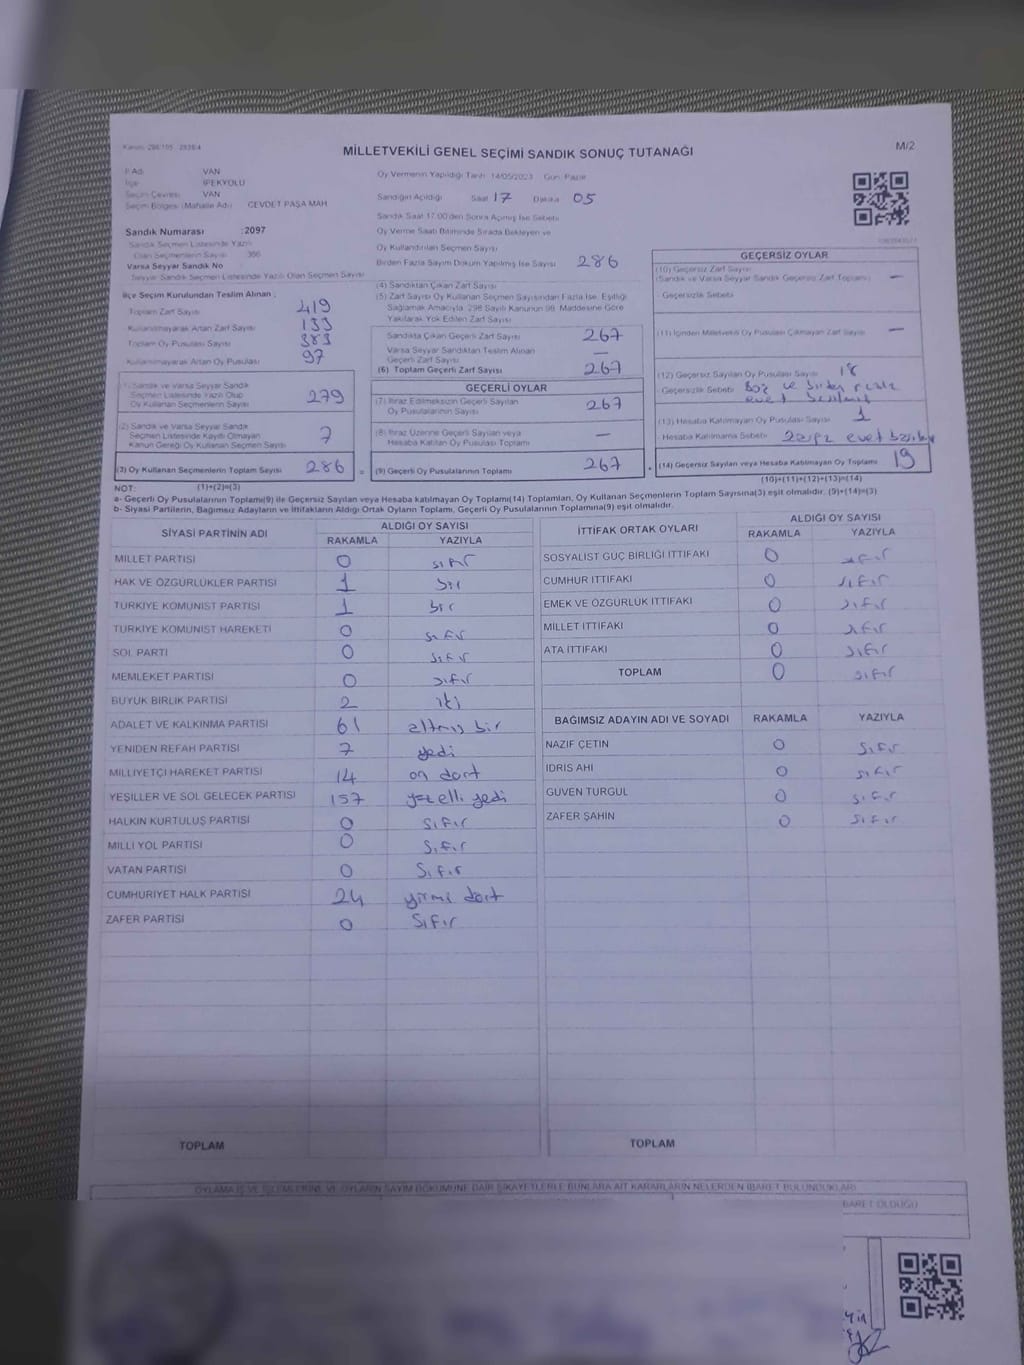 Kanun: 298/105 : 2839/4
M/2
MİLLETVEKİLİ GENEL SEÇİMİ SANDIK SONUÇ TUTANAĞI
İl Adı VAN
İlçe İPEKYOLU
Seçim Çevresi VAN
Seçim Bölgesi (Mahalle Adı) CEVDET PAŞA MAH
Sandık Numarası :2097
Sandık Seçmen Listesinde Yazılı
Olan Seçmenlerin Sayısı 366
Varsa Seyyar Sandık No
Seyyar Sandık Seçmen Listesinde Yazılı Olan Seçmen Sayısı
Oy Vermenin Yapıldığı Tarih 14/05/2023 Gün: Pazar
Sandığın Açıldığı Saat 17 Dakika 05
Sandık Saat 17.00'den Sonra Açılmış İse Sebebi
Oy Verme Saati Bitiminde Sırada Bekleyen ve
Oy Kullandırılan Seçmen Sayısı
Birden Fazla Sayım Döküm Yapılmış İse Sayısı 286
İlçe Seçim Kurulundan Teslim Alınan ;
Toplam Zarf Sayısı 419
Kullanılmayarak Artan Zarf Sayısı 133
Toplam Oy Pusulası Sayısı 383
Kullanılmayarak Artan Oy Pusulası 97
(1) Sandık ve Varsa Seyyar Sandık
Seçmen Listesinde Yazılı Olup
Oy Kullanan Seçmenlerin Sayısı 279
(2) Sandık ve Varsa Seyyar Sandık
Seçmen Listesinde Kayıtlı Olmayan
Kanun Gereği Oy Kullanan Seçmen Sayısı 7
(3) Oy Kullanan Seçmenlerin Toplam Sayısı 286 =
(4) Sandıktan Çıkan Zarf Sayısı
(5) Zarf Sayısı Oy Kullanan Seçmen Sayısından Fazla İse, Eşitliği
Sağlamak Amacıyla, 298 Sayılı Kanunun 98. Maddesine Göre
Yakılarak Yok Edilen Zarf Sayısı
Sandıkta Çıkan Geçerli Zarf Sayısı 267
Varsa Seyyar Sandıktan Teslim Alınan
Geçerli Zarf Sayısı —
(6) Toplam Geçerli Zarf Sayısı 267
GEÇERLİ OYLAR
(7) İtiraz Edilmeksizin Geçerli Sayılan
Oy Pusulalarının Sayısı 267
(8) İtiraz Üzerine Geçerli Sayılan veya
Hesaba Katılan Oy Pusulası Toplamı —
(9) Geçerli Oy Pusulalarının Toplamı 267
GEÇERSİZ OYLAR
(10) Geçersiz Zarf Sayısı
(Sandık ve Varsa Seyyar Sandık Geçersiz Zarf Toplamı) —
Geçersizlik Sebebi
(11) İçinden Milletvekili Oy Pusulası Çıkmayan Zarf Sayısı —
(12) Geçersiz Sayılan Oy Pusulası Sayısı 18
Geçersizlik Sebebi Boş ve birden fazla
evet
(13) Hesaba Katılmayan Oy Pusulası Sayısı 1
Hesaba Katılmama Sebebi evet
(14) Geçersiz Sayılan veya Hesaba Katılmayan Oy Toplamı 19
(10)+(11)+(12)+(13)=(14)
NOT: (1)+(2)=(3)
a- Geçerli Oy Pusulalarının Toplamı(9) ile Geçersiz Sayılan veya Hesaba katılmayan Oy Toplamı(14) Toplamları, Oy Kullanan Seçmenlerin Toplam Sayısına(3) eşit olmalıdır. (9)+(14)=(3)
b- Siyasi Partilerin, Bağımsız Adayların ve İttifakların Aldığı Ortak Oyların Toplamı, Geçerli Oy Pusulalarının Toplamına(9) eşit olmalıdır.
SİYASİ PARTİNİN ADI ALDIĞI OY SAYISI
RAKAMLA YAZIYLA
MİLLET PARTİSİ 0 sıfır
HAK VE ÖZGÜRLÜKLER PARTİSİ 1 bir
TÜRKİYE KOMÜNİST PARTİSİ 1 bir
TÜRKİYE KOMÜNİST HAREKETİ 0 sıfır
SOL PARTİ 0 sıfır
MEMLEKET PARTİSİ 0 sıfır
BÜYÜK BİRLİK PARTİSİ 2 iki
ADALET VE KALKINMA PARTİSİ 61 altmış bir
YENİDEN REFAH PARTİSİ 7 yedi
MİLLİYETÇİ HAREKET PARTİSİ 14 on dört
YEŞİLLER VE SOL GELECEK PARTİSİ 157 yüz elli yedi
HALKIN KURTULUŞ PARTİSİ 0 sıfır
MİLLİ YOL PARTİSİ 0 sıfır
VATAN PARTİSİ 0 sıfır
CUMHURİYET HALK PARTİSİ 24 yirmi dört
ZAFER PARTİSİ 0 sıfır
TOPLAM
İTTİFAK ORTAK OYLARI ALDIĞI OY SAYISI
RAKAMLA YAZIYLA
SOSYALİST GÜÇ BİRLİĞİ İTTİFAKI 0 sıfır
CUMHUR İTTİFAKI 0 sıfır
EMEK VE ÖZGÜRLÜK İTTİFAKI 0 sıfır
MİLLET İTTİFAKI 0 sıfır
ATA İTTİFAKI 0 sıfır
TOPLAM 0 sıfır
BAĞIMSIZ ADAYIN ADI VE SOYADI RAKAMLA YAZIYLA
NAZİF ÇETİN 0 sıfır
İDRİS AHİ 0 sıfır
GÜVEN TURGUL 0 sıfır
ZAFER ŞAHİN 0 sıfır
TOPLAM
OYLAMA İŞ VE İŞLEMLERİNE VE OYLARIN SAYIM DÖKÜMÜNE DAİR ŞİKAYETLERLE BUNLARA AİT KARARLARIN NELERDEN İBARET BULUNDUKLARI
BARET OLDUĞU